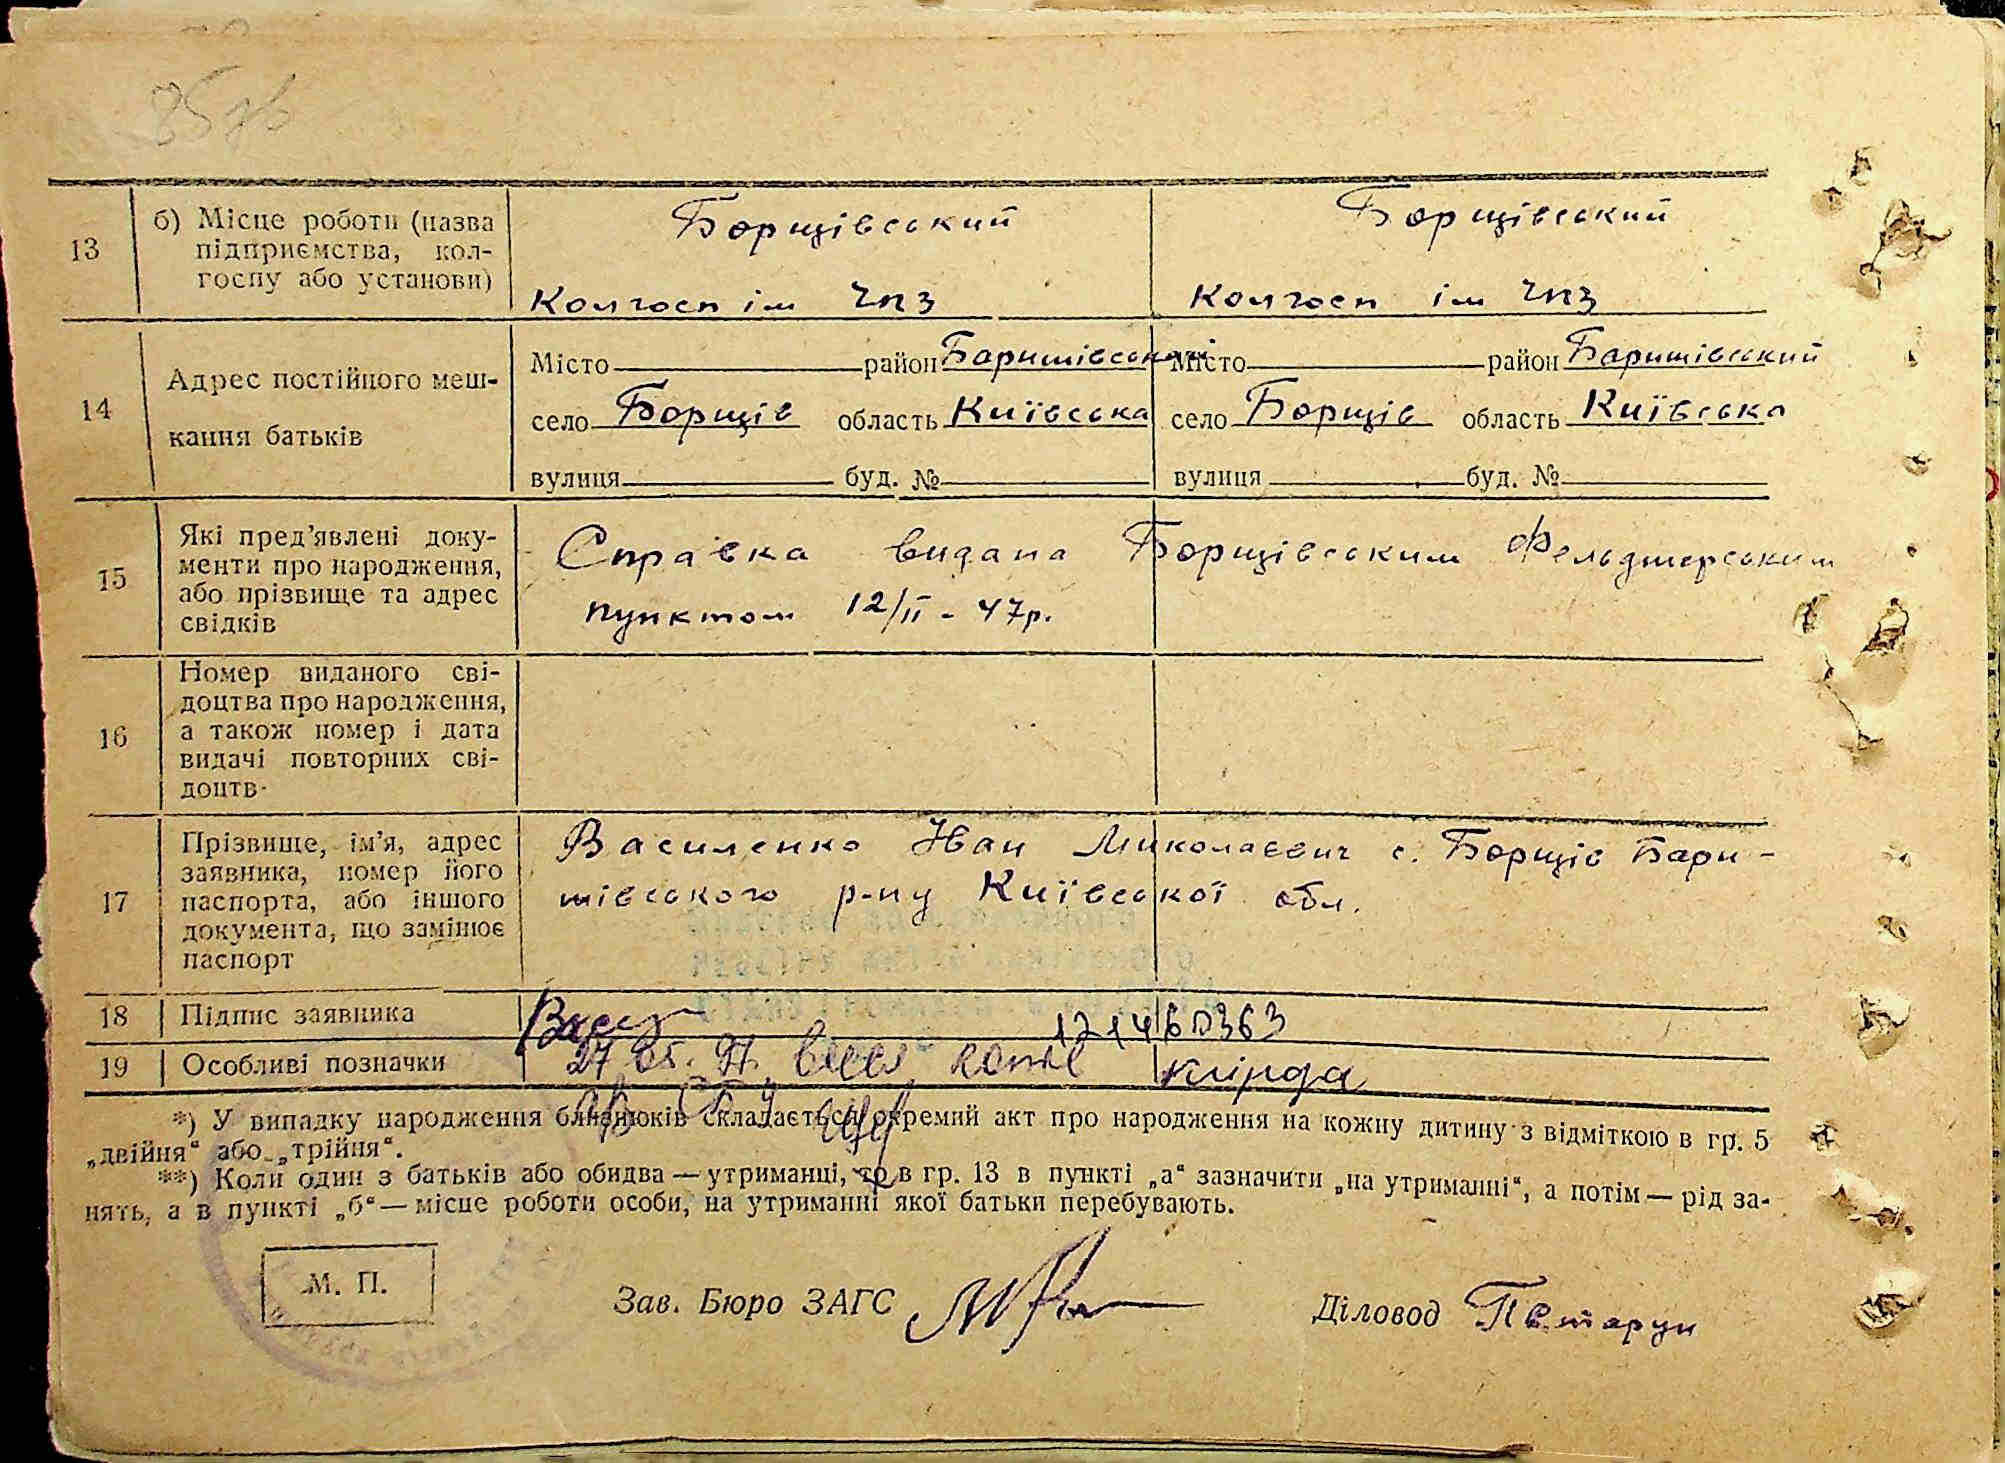 13 б) Місце роботи (назва Борщівський Борщівський
підприємства, кол-
госпу або установи) Колгосп ім ЧПЗ Колгосп ім ЧПЗ
14 Адрес постійного меш- Місто район Баришівський Місто район Баришівський
село Борщів область Київська село Борщів область Київська
кання батьків
вулиця буд. № вулиця буд. №
15 Які пред’явлені доку-
менти про народження,
або прізвище та адрес
свідків
Справка видана Борщівським Фельдшерським
пунктом 12/II - 47р.
16 Номер виданого сві-
доцтва про народження,
а також номер і дата
видачі повторних сві-
доцтв
17 Прізвище, ім’я, адрес
заявника, номер його
паспорта, або іншого
документа, що замінює
паспорт
Василенко Иван Миколаєвич с. Борщів Бари-
шівського р-ну Київської обл.
18 Підпис заявника 171460363
19 Особливі позначки
*) У випадку народження близнюків складається окремий акт про народження на кожну дитину з відміткою в гр. 5
„двійня“ або „трійня“.
**) Коли один з батьків або обидва — утриманці, то в гр. 13 в пункті „а“ зазначити „на утриманні“, а потім — рід за-
нять, а в пункті „б“ — місце роботи особи, на утриманні якої батьки перебувають.
М. П. Зав. Бюро ЗАГС Діловод